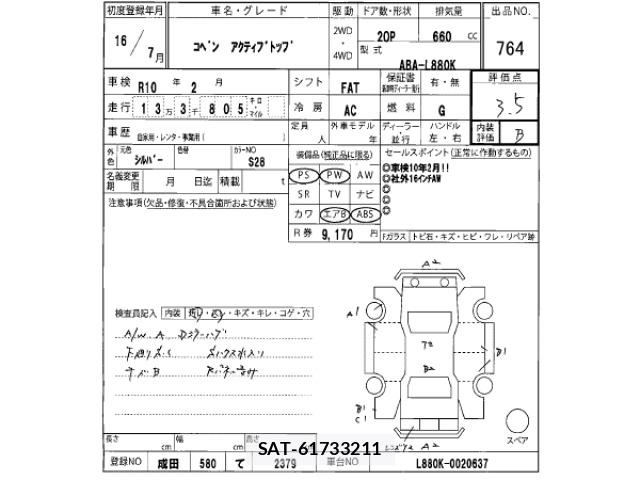 初度登録年月 車名・グレード 駆動 ドア数・形状 排気量 出品NO.
16 / 7月 コペン アクティブトップ 2WD ・ 4WD 2OP 660 cc 764
型式 ABA-L880K
車検 R10 年 2 月 シフト FAT 保証書 有・無 評価点
走行 13万3千805 キロ・マイル 冷房 AC 燃料 G 3.5
車歴 自家用・レンタ・事業用( 定員 人 外車モデル 年 ディーラー・並行 ハンドル 左・右 内装評価 B
外色 元色 シルバー 色替 カラーNO S28 装備品(純正品に限る) セールスポイント(正常に作動するもの)
名義変更期限 月 日迄 積載 t PS PW AW ◎車検10年2月!!
◎社外16インチAW
SR TV ナビ ◎
注意事項(欠品・修復・不具合箇所および状態) カワ エアB ABS ◎
◎
R券 9,170 円 Fガラス トビ石・キズ・ヒビ・ワレ・リペア跡
A2
検査員記入 内装 ・キズ・キレ・コゲ・穴 A1
A/W A
B1
B2
B1
C1
A2
スペア
長さ cm 幅 cm 高さ
SAT-61733211
登録NO 成田 580 て 2379 車台NO L880K-0020637